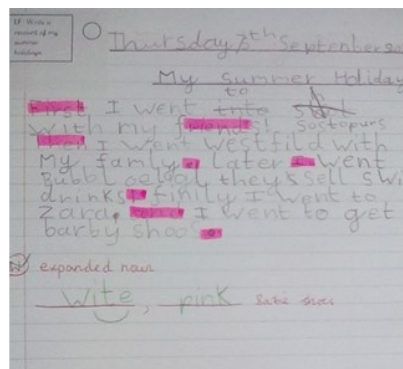 LF Write a
recount of my
summer
holidays
Thursday 7th September 20
My Summer Holiday
to
First I went into
with my friends! Sostopurs
I went westfild with
My famly. Later I went
Bubbl ceeal they's sell swi
drinks. finily I went to
Zara. I went to get
barby shoos.
expanded noun
wite, pink